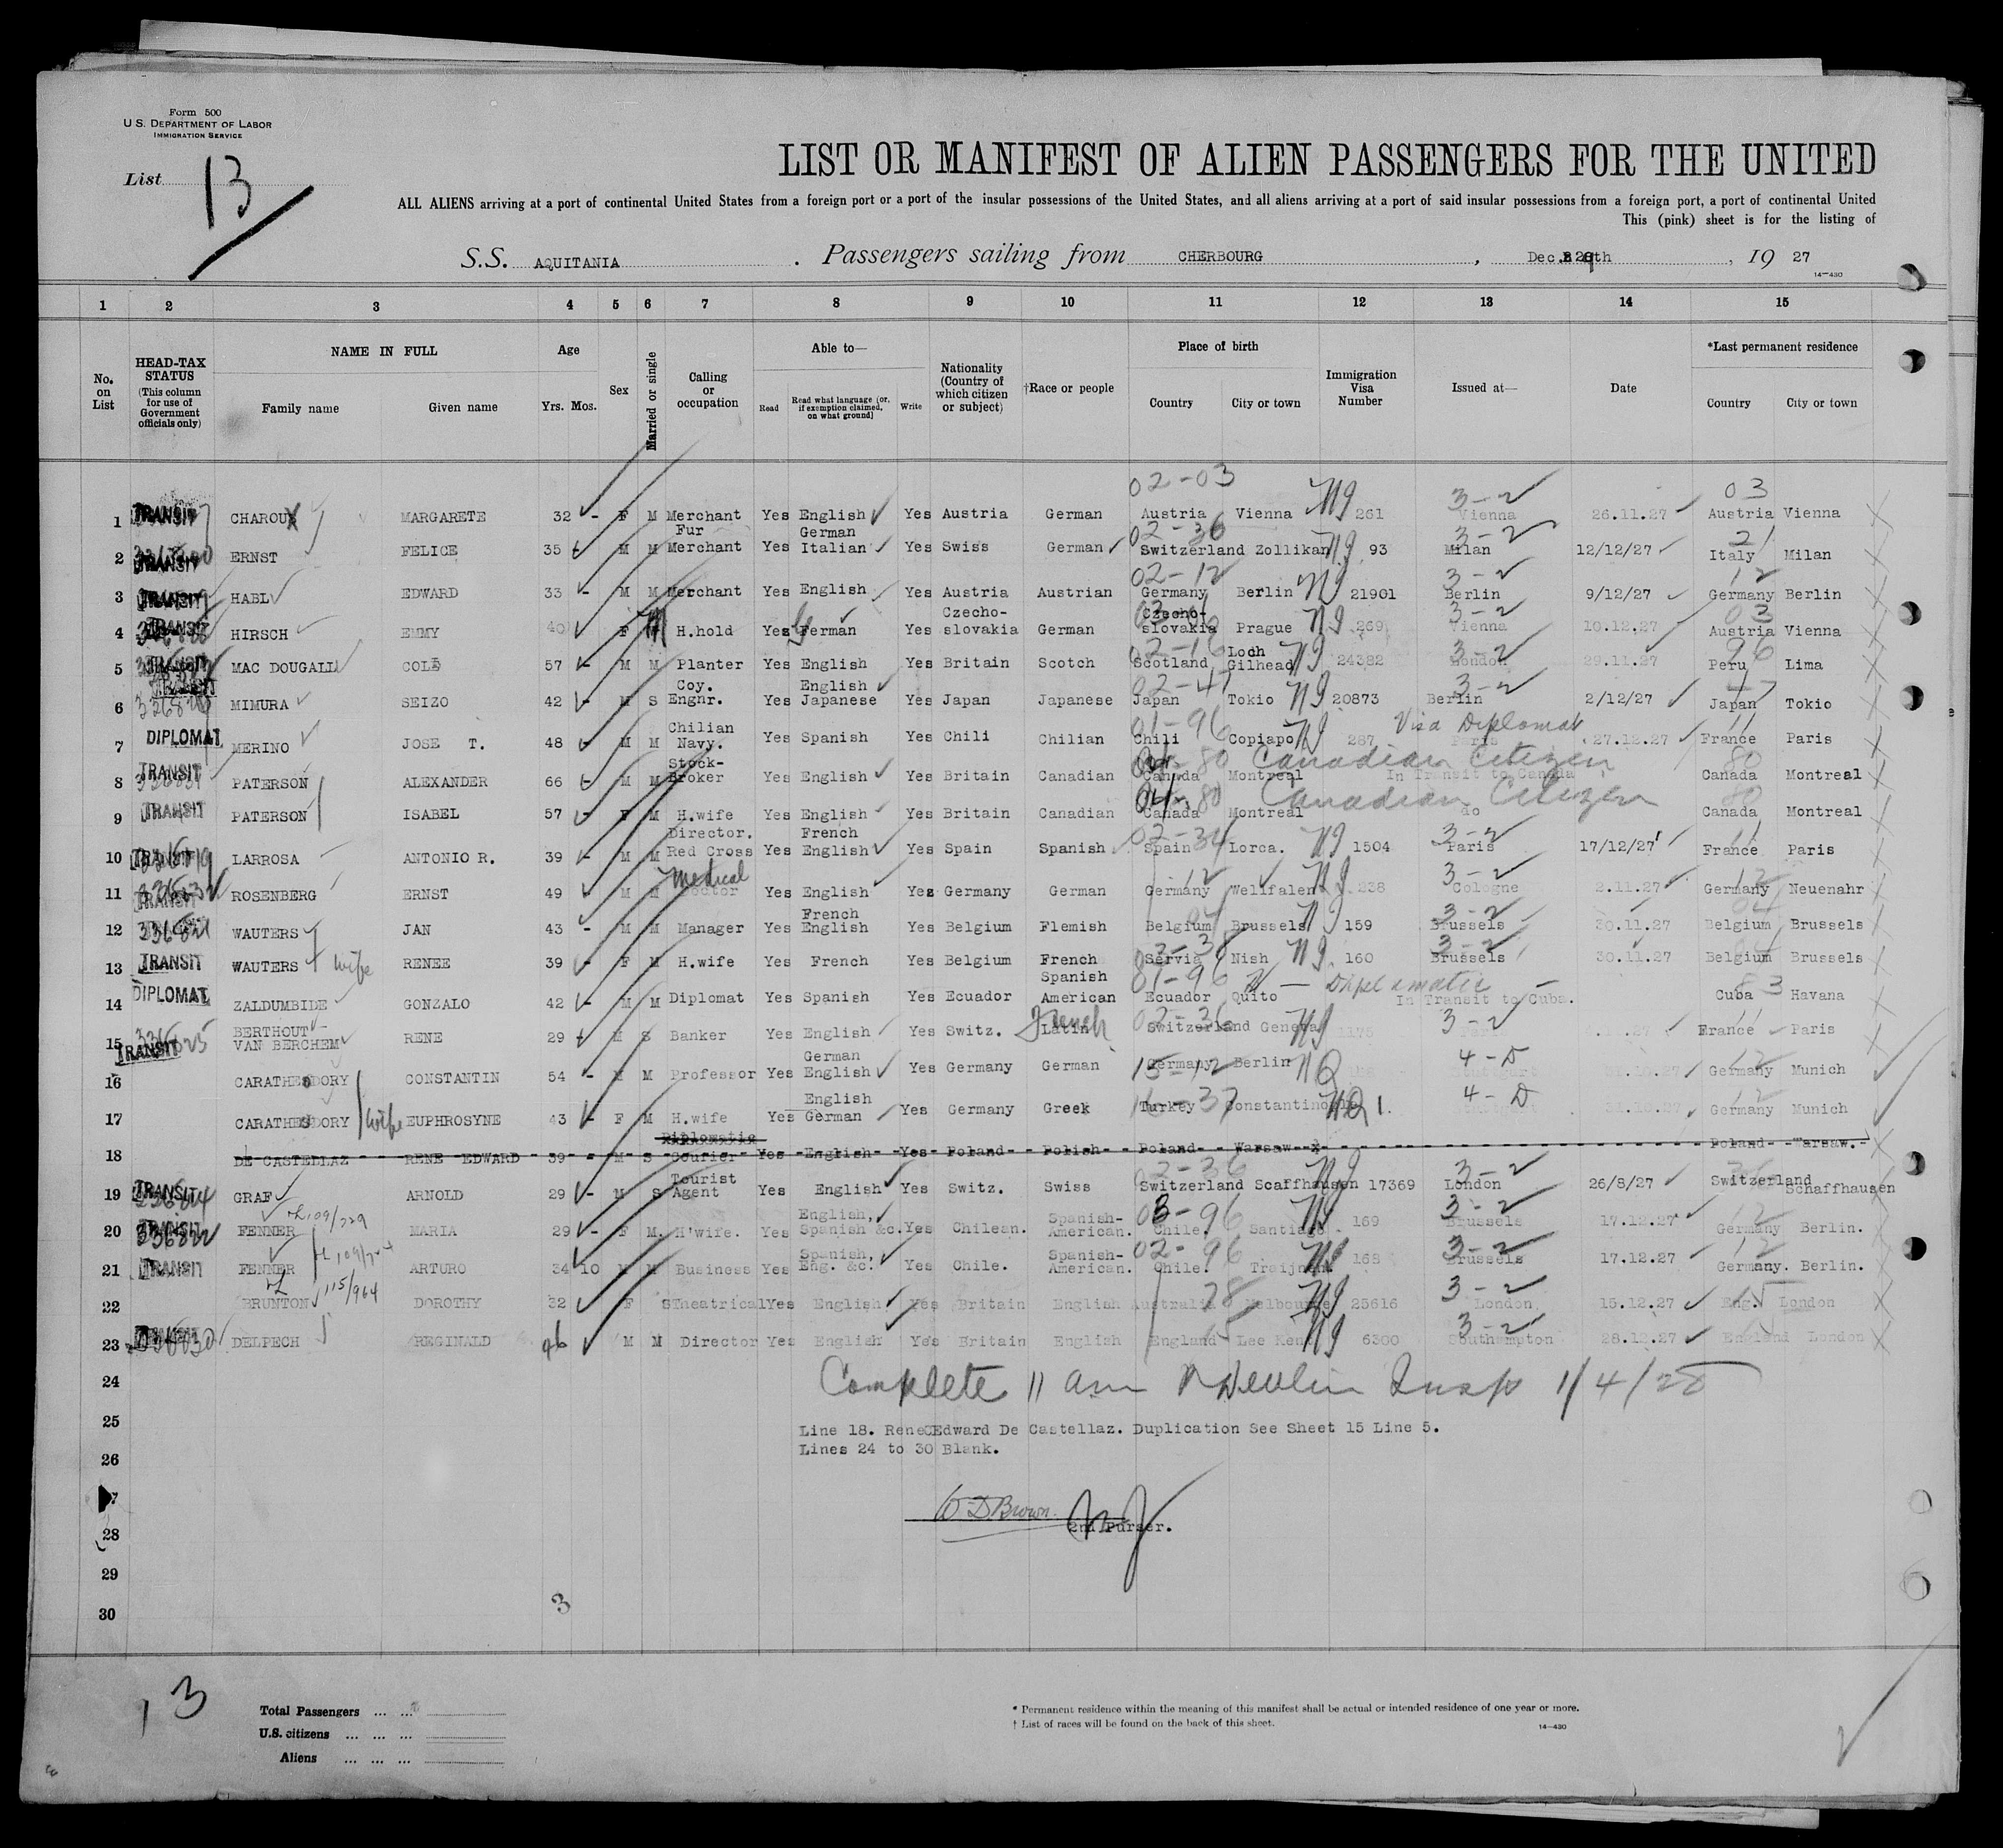 Form 500
U.S. DEPARTMENT OF LABOR
IMMIGRATION SERVICE
List 13
LIST OR MANIFEST OF ALIEN PASSENGERS FOR THE UNITED
ALL ALIENS arriving at a port of continental United States from a foreign port or a port of the insular possessions of the United States, and all aliens arriving at a port of said insular possessions from a foreign port, a port of continental United
This (pink) sheet is for the listing of
S.S. AQUITANIA . Passengers sailing from CHERBOURG , Dec. 29th , 19 27
14—430
1 2 3 4 5 6 7 8 9 10 11 12 13 14 15
No. on List
HEAD-TAX STATUS (This column for use of Government officials only)
NAME IN FULL
Family name Given name
Age
Yrs. Mos.
Sex
Married or single
Calling or occupation
Able to—
Read Read what language (or, if exemption claimed, on what ground) Write
Nationality (Country of which citizen or subject)
†Race or people
Place of birth
Country City or town
Immigration Visa Number
Issued at—
Date
*Last permanent residence
Country City or town
02-03 3-2 03
1 TRANSIT CHAROUX MARGARETE 32 - F M Merchant Yes English Yes Austria German Austria Vienna 261 Vienna 26.11.27 Austria Vienna
Fur German 02-36 3-2 21
2 TRANSIT ERNST FELICE 35 M M Merchant Yes Italian Yes Swiss German Switzerland Zollikan 93 Milan 12/12/27 Italy Milan
02-12 3-2 12
3 TRANSIT HABL EDWARD 33 - M M Merchant Yes English Yes Austria Austrian Germany Berlin 21901 Berlin 9/12/27 Germany Berlin
Czecho- Czecho- 3-2 03
4 TRANSIT HIRSCH EMMY 40 F M H.hold Yes German Yes slovakia German slovakia Prague 269 Vienna 10.12.27 Austria Vienna
02-16 Loch 3-2 96
5 TRANSIT MAC DOUGALL COLE 57 - M M Planter Yes English Yes Britain Scotch Scotland Gilhead 24382 London 29.11.27 Peru Lima
TRANSIT Coy. English 02-47 3-2 47
6 MIMURA SEIZO 42 - M S Engnr. Yes Japanese Yes Japan Japanese Japan Tokio 20873 Berlin 2/12/27 Japan Tokio
DIPLOMAT Chilian 01-96 Visa Diplomat 11
7 MERINO JOSE T. 48 - M M Navy. Yes Spanish Yes Chili Chilian Chili Copiapo 287 Paris 27.12.27 France Paris
TRANSIT Stock- 80 Canadian Citizen 80
8 PATERSON ALEXANDER 66 - M M Broker Yes English Yes Britain Canadian Canada Montreal In Transit to Canada Canada Montreal
04-80 Canadian Citizen 80
9 TRANSIT PATERSON ISABEL 57 - F M H.wife Yes English Yes Britain Canadian Canada Montreal do Canada Montreal
Director. French 02-34 3-2 11
10 TRANSIT LARROSA ANTONIO R. 39 - M M Red Cross Yes English Yes Spain Spanish Spain Lorca. 1504 Paris 17/12/27 France Paris
Medical 12 3-2 12
11 TRANSIT ROSENBERG ERNST 49 M M Doctor Yes English Yes Germany German Germany Wellfalen 238 Cologne 2.11.27 Germany Neuenahr
French 04 3-2 04
12 WAUTERS JAN 43 - M M Manager Yes English Yes Belgium Flemish Belgium Brussels 159 Brussels 30.11.27 Belgium Brussels
3-2
13 TRANSIT WAUTERS wife RENEE 39 - F M H.wife Yes French Yes Belgium French Servia Nish 160 Brussels 30.11.27 Belgium Brussels
DIPLOMAT Spanish 01-96 Diplomatic 83
14 ZALDUMBIDE GONZALO 42 - M M Diplomat Yes Spanish Yes Ecuador American Ecuador Quito In Transit to Cuba. Cuba Havana
BERTHOUT French 02-36 3-2 11
15 TRANSIT VAN BERCHEM RENE 29 M S Banker Yes English Yes Switz. Latin Switzerland Geneva France Paris
German 15-12 4-D 12
16 CARATHEODORY CONSTANTIN 54 - M M Professor Yes English Yes Germany German Germany Berlin Germany Munich
English 4-D 12
17 CARATHEODORY wife EUPHROSYNE 43 - F M H.wife Yes German Yes Germany Greek Turkey Constantinople Germany Munich
Diplomatic
18 DE CASTELLAZ RENE EDWARD 39 - M S Courier Yes English Yes Poland Polish Poland Warsaw Poland Warsaw.
Tourist 02-36 3-2
19 TRANSIT GRAF ARNOLD 29 - M S Agent Yes English Yes Switz. Swiss Switzerland Scaffhausen 17369 London 26/8/27 Switzerland Schaffhausen
English, Spanish- 03-96 3-2 12
20 TRANSIT FENNER MARIA 29 - F M. H'wife. Yes Spanish &c. Yes Chilean. American. Chile. Santiago. 169 Brussels 17.12.27 Germany Berlin.
Spanish, Spanish- 02-96 3-2 12
21 TRANSIT FENNER ARTURO 34 10 M M Business Yes Eng. &c. Yes Chile. American. Chile. 168 Brussels 17.12.27 Germany. Berlin.
115/964 78 3-2 15
22 BRUNTON DOROTHY 32 F S Theatrical Yes English Yes Britain English Australia Melbourne 25616 London, 15.12.27 Eng. London
3-2
23 DELPECH REGINALD 46 M M Director Yes English Yes Britain English England Lee Kent 6300 Southampton 28.12.27 England London
24 Complete 11 am Devlin Insp 1/4/28
25 Line 18. Rene Edward De Castellaz. Duplication See Sheet 15 Line 5.
Lines 24 to 30 Blank.
26
27
W D Brown
2nd Purser.
28
29
30 3
13
Total Passengers ... ...
U.S. citizens ... ... ...
Aliens ... ... ...
* Permanent residence within the meaning of this manifest shall be actual or intended residence of one year or more.
† List of races will be found on the back of this sheet.
14—430